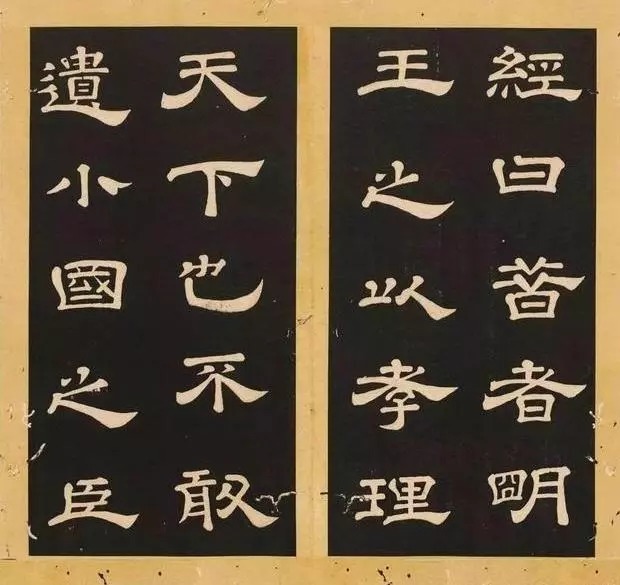 經曰昔者明
王之以孝理
天下也不敢
遺小國之臣